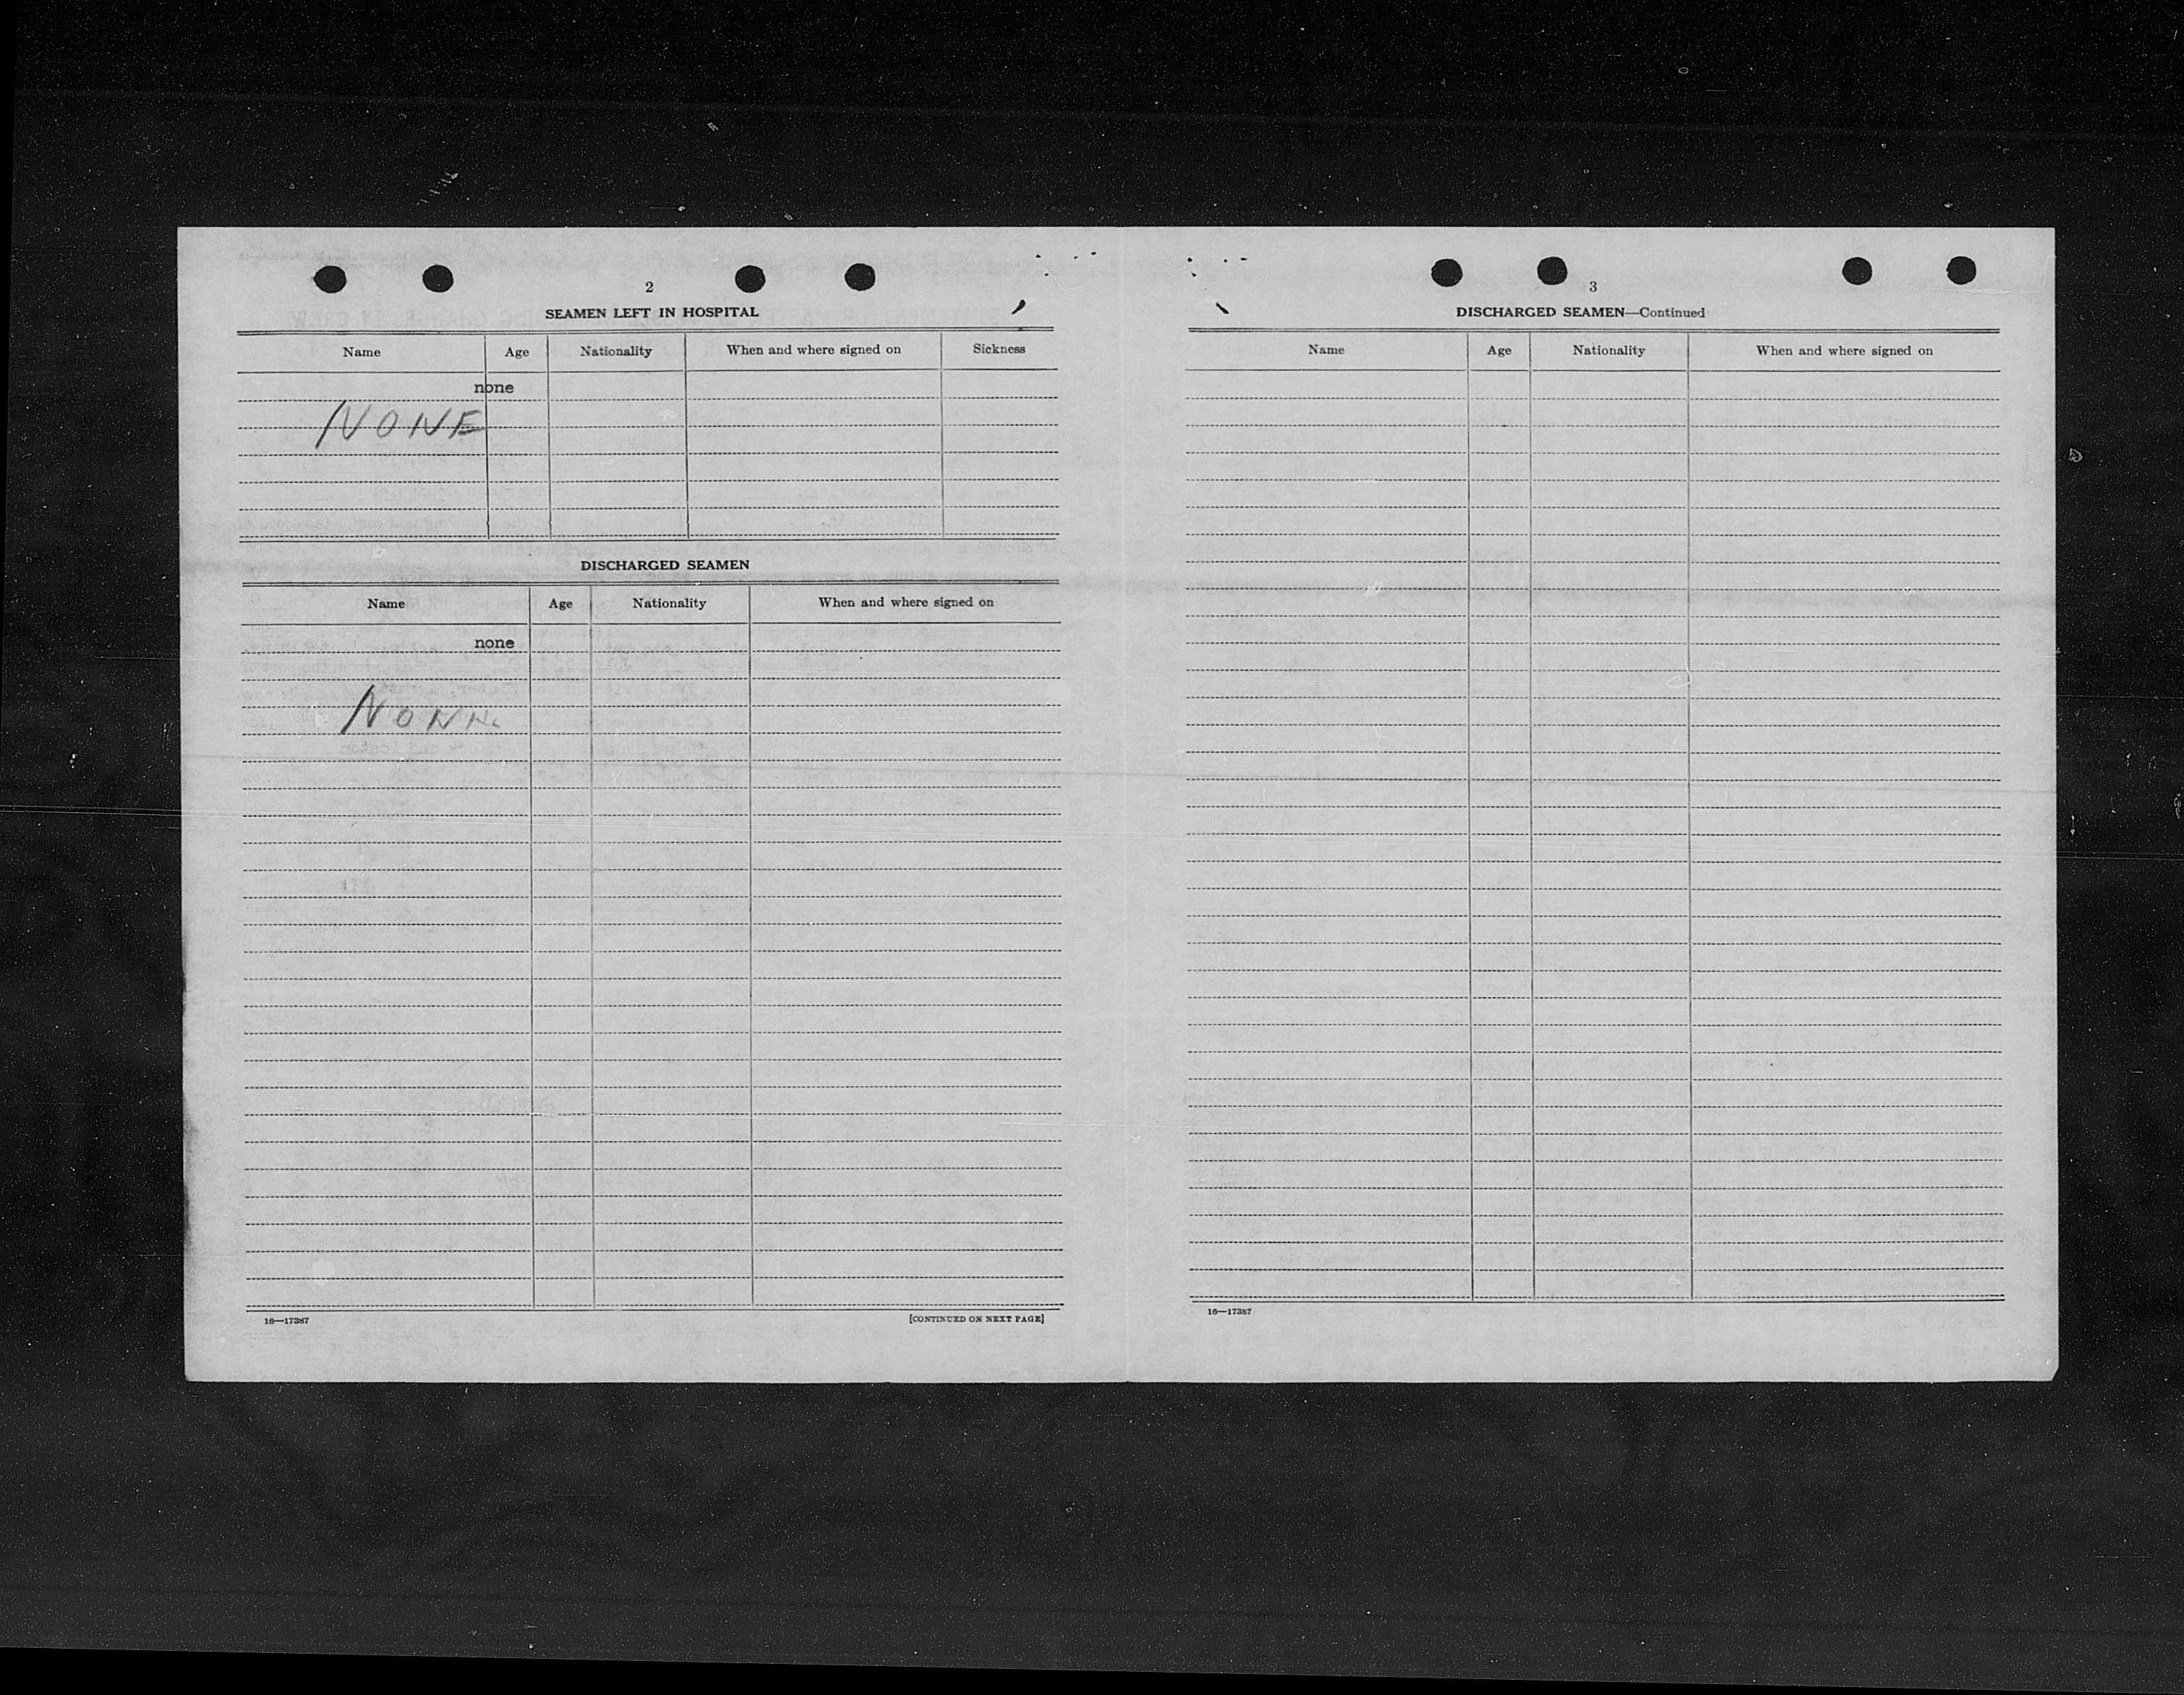 2
SEAMEN LEFT IN HOSPITAL
Name Age Nationality When and where signed on Sickness
none
NONE
DISCHARGED SEAMEN
Name Age Nationality When and where signed on
none
16—17387 [CONTINUED ON NEXT PAGE]
3
DISCHARGED SEAMEN—Continued
Name Age Nationality When and where signed on
16—17387